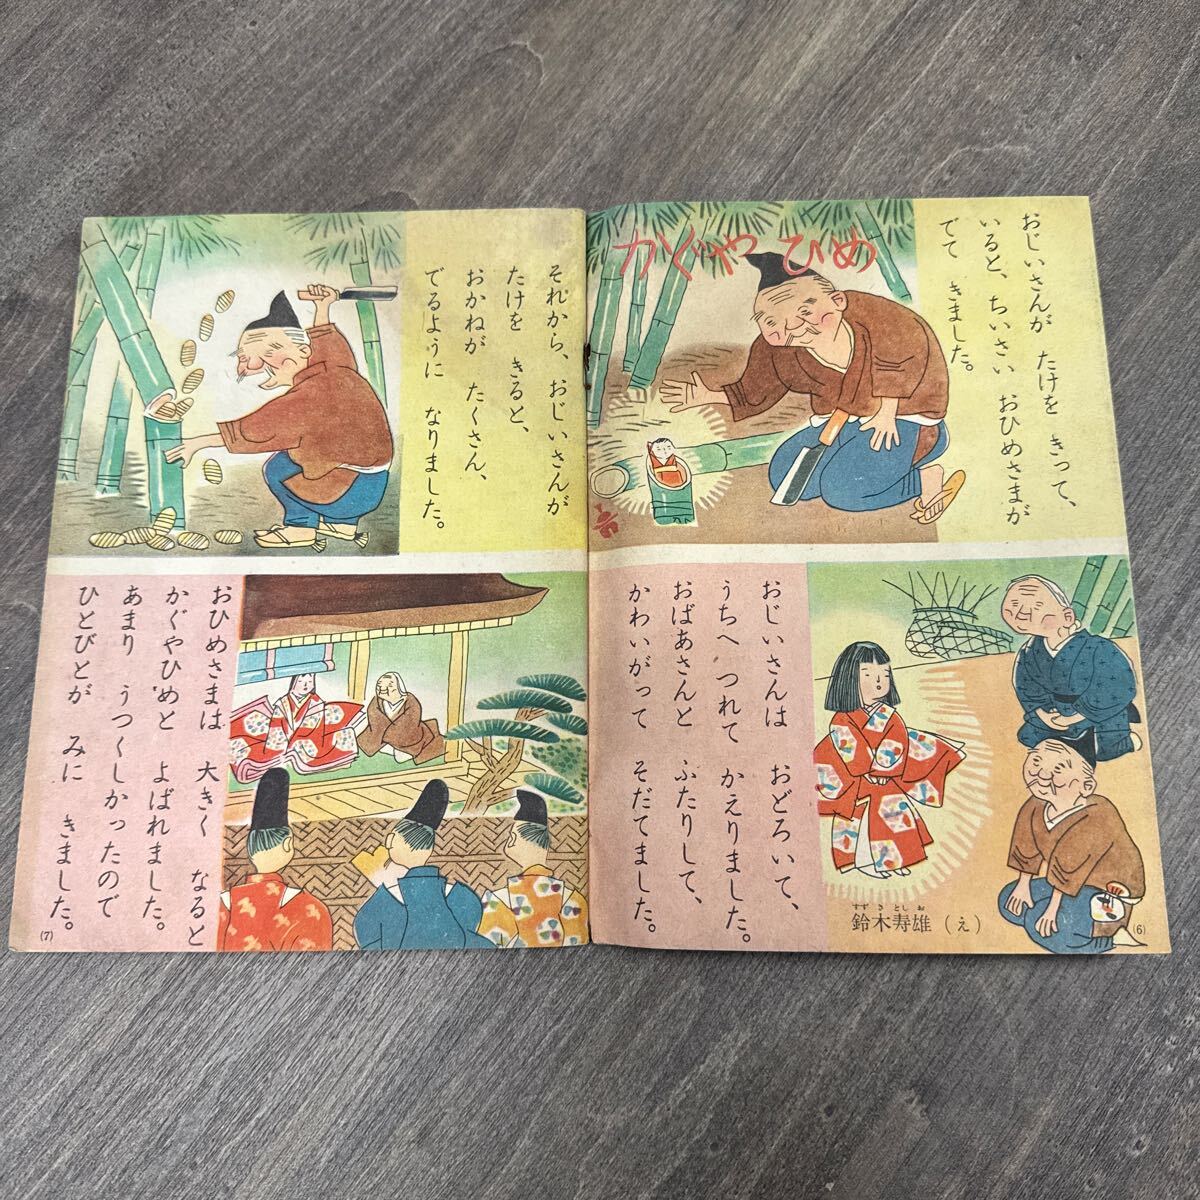 かぐや ひめ
おじいさんが たけを きって、
いると、ちいさい おひめさまが
でて きました。
おじいさんは おどろいて、
うちへ つれて かえりました。
おばあさんと ふたりして、
かわいがって そだてました。
すず き とし お
鈴木寿雄(え)
(6)
それから、おじいさんが
たけを きると、
おかねが たくさん、
でるように なりました。
おひめさまは 大きく なると
かぐやひめと よばれました。
あまり うつくしかったので
ひとびとが みに きました。
(7)